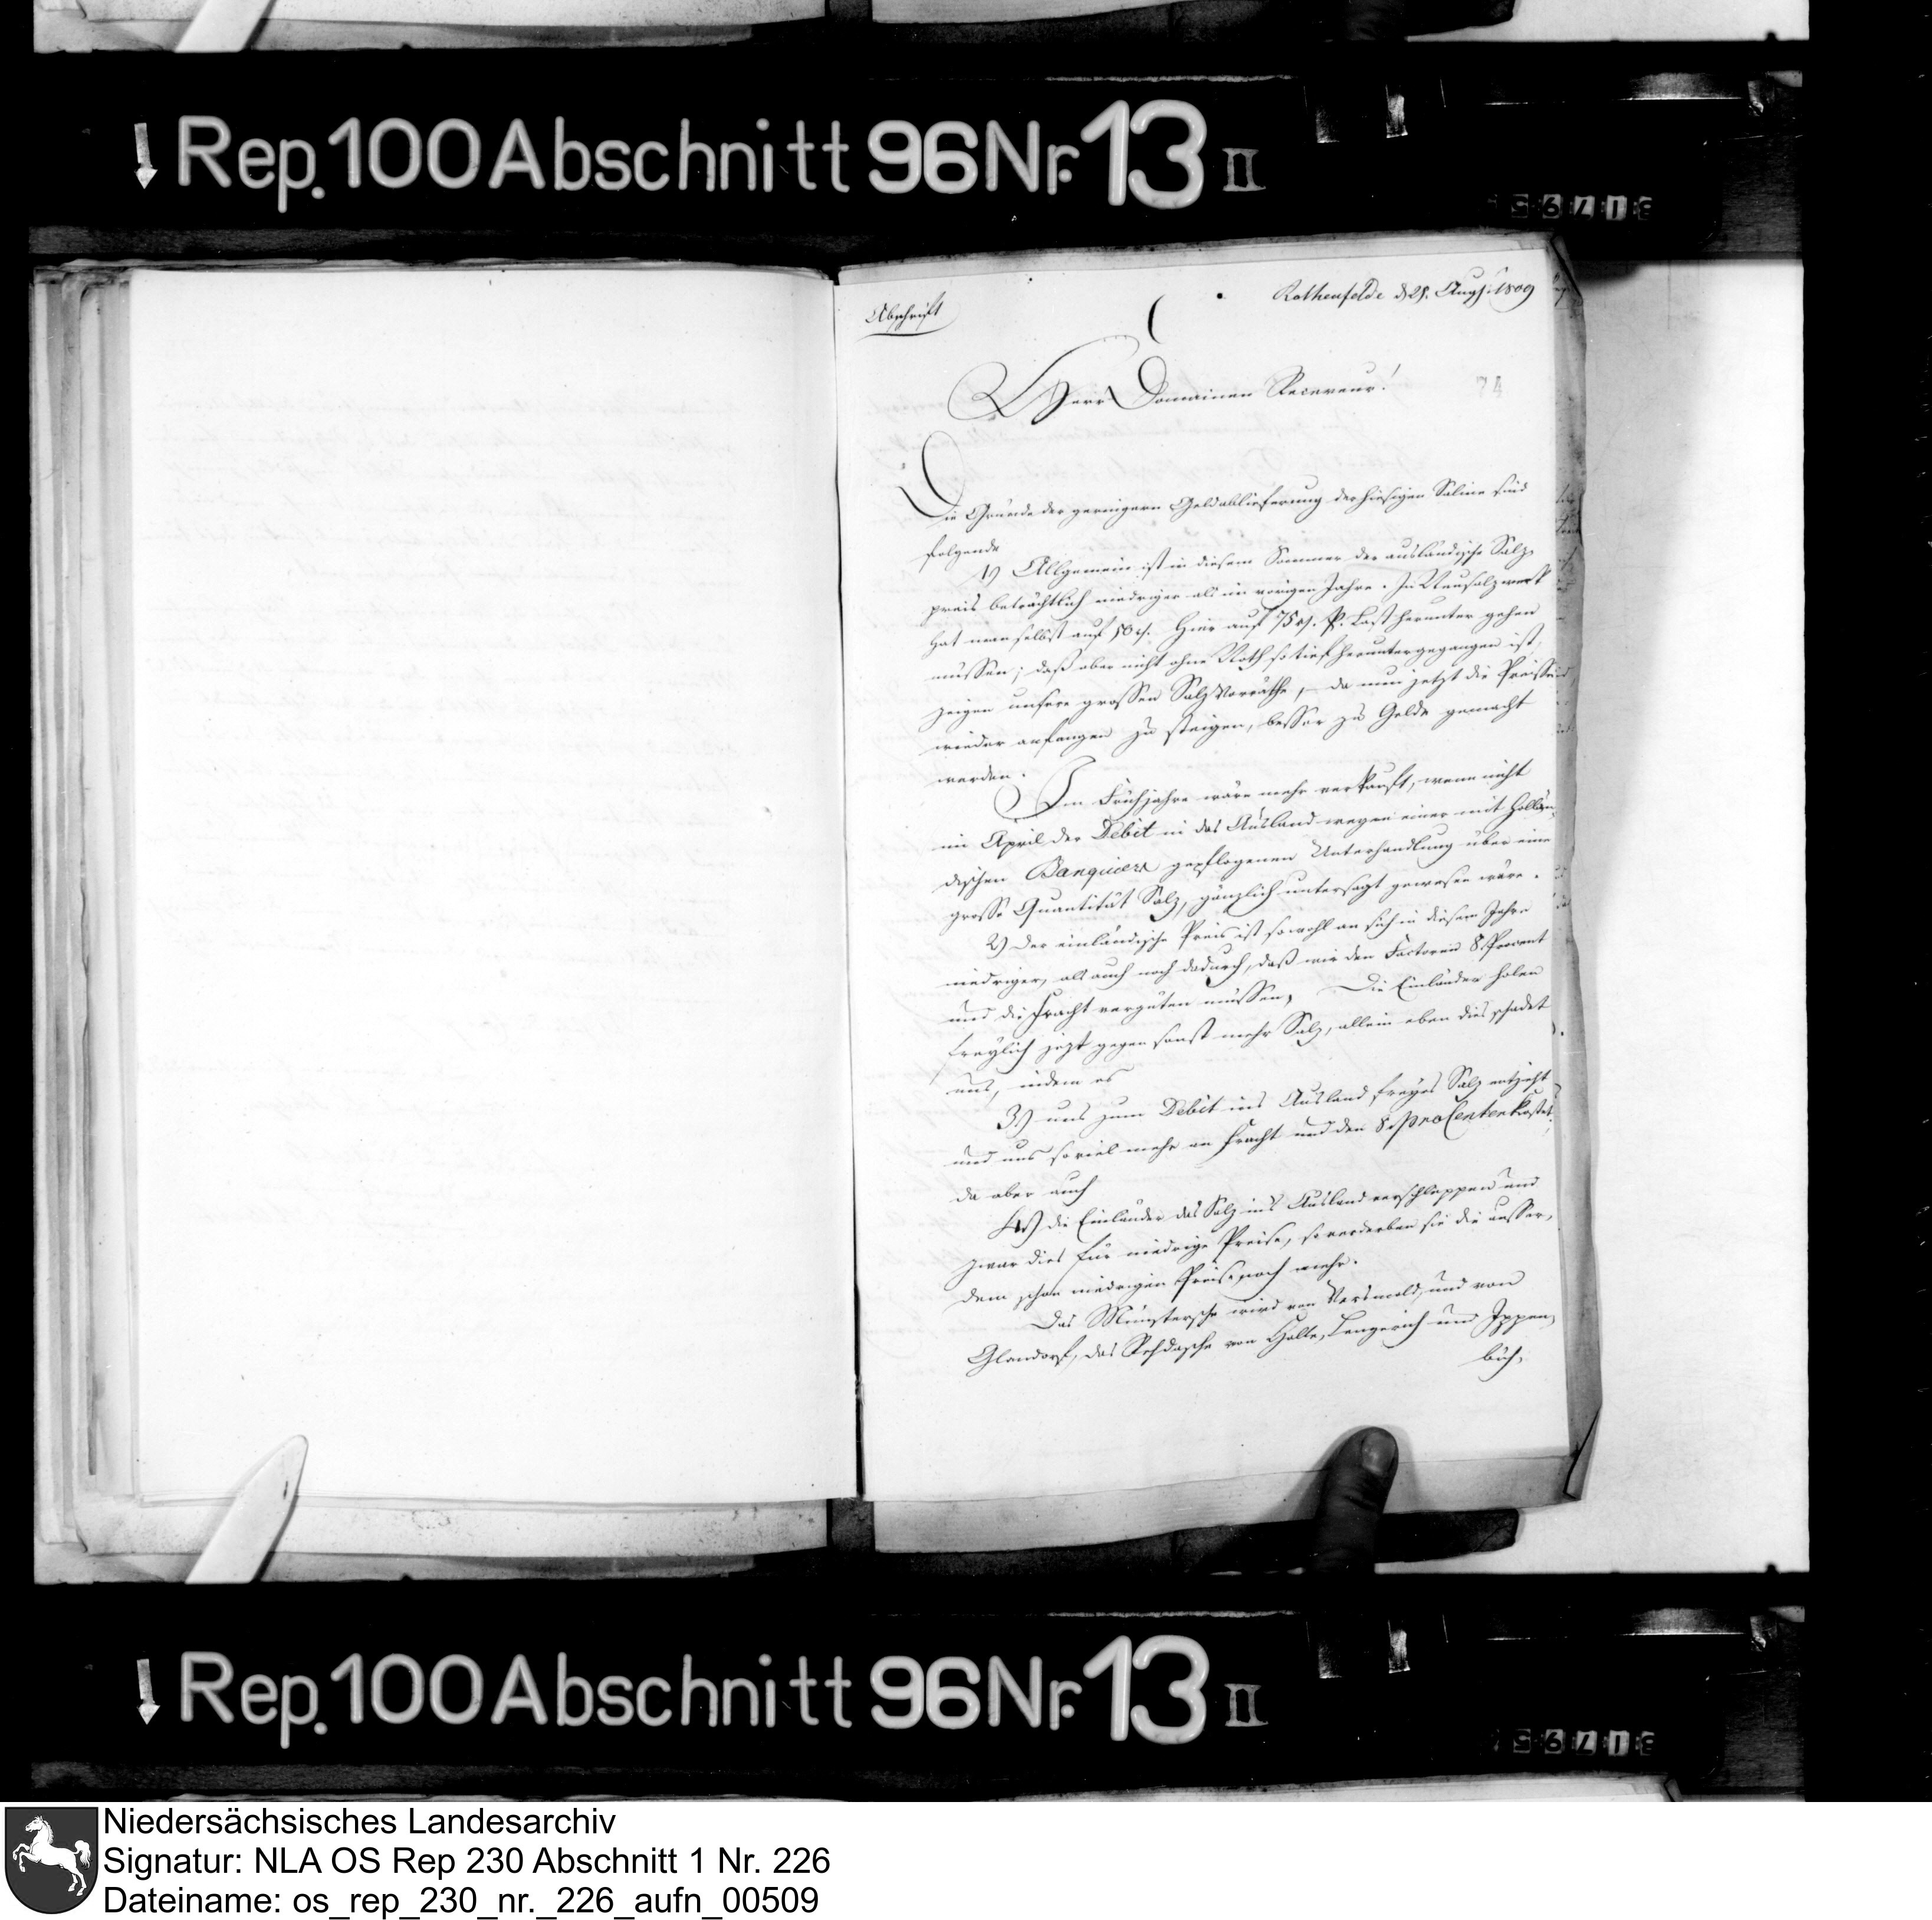 Rep. 100 Abschnitt 96 Nr. 13 II
Abschrift
Rothenfelde d 29. Aug. 1809
74
Herr Domainen Receveur!
Die Gründe der geringern Geldablieferung der hiesigen Saline sind
folgende
1) Allgemein ist in diesem Sommer der ausländische Salz-
preis beträchtlich niedriger als im vorigen Jahre. In Neusalzwerk
hat man selbst auf 50 rt. Hier auf 75 rt. P. Last herunter gehen
müssen; daß aber nicht ohne Noth so tief heruntergegangen ist,
zeigen unsere grossen Salzvorräthe, da nun jetzt die Preise
wieder anfangen zu steigen, besser zu Gelde gemacht
werden.
Im Frühjahre wäre mehr verkauft, wenn nicht
im April der Debit in das Ausland wegen einer mit Hollän-
dischen Banquiers gepflogenen Unterhandlung über eine
grosse Quantität Salz, gänzlich untersagt gewesen wäre.
2) Der einländische Preis ist sowohl an sich in diesem Jahre
niedriger, als auch noch dadurch, daß wir den Factoren 8. Procent
und die Fracht vergüten müssen, Die Einländer holen
freylich jezt gegen sonst mehr Salz, allein eben dies schadet
uns, indem es
3) uns zum Debit ins Ausland freyes Salz entzieht
und uns so viel mehr an Fracht und den 8. pro Centen kostet;
da aber auch
4) die Einländer das Salz ins Ausland verschleppen und
zwar dies für niedrige Preise, so verderben sie die ausser-
dem schon niedrigen Preise noch mehr.
Das Münstersche wird von Versmold, und von
Glandorf, das Rhedasche von Halle, Lengerich und Ippen-
büh-
Rep. 100 Abschnitt 96 Nr. 13 II
Niedersächsisches Landesarchiv
Signatur: NLA OS Rep 230 Abschnitt 1 Nr. 226
Dateiname: os_rep_230_nr._226_aufn_00509